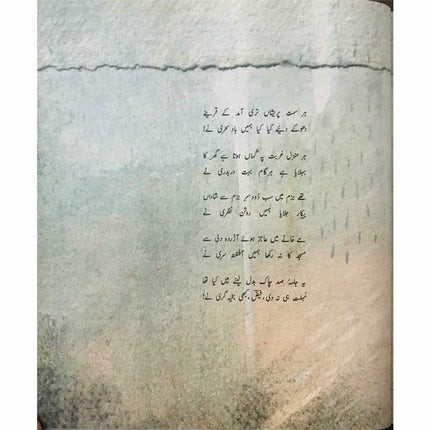 ہر سمت پریشاں تری آمد کے قرینے
دھوکے دیے کیا کیا ہمیں بادِ سحری نے!
ہر منزلِ غربت پہ گماں ہوتا ہے گھر کا
بہلایا ہے ہر گام بہت دربدری نے
تھے بزم میں سب دودِ سرِ بزم سے شاداں
بیکار جلایا ہمیں روشن نظری نے
مے خانے میں عاجز ہوئے آزردہ دلی سے
مسجد کا نہ رکھا ہمیں آشفتہ سری نے
یہ جامۂ صد چاک بدل لینے میں کیا تھا
مہلت ہی نہ دی، فیض، کبھی بخیہ گری نے!